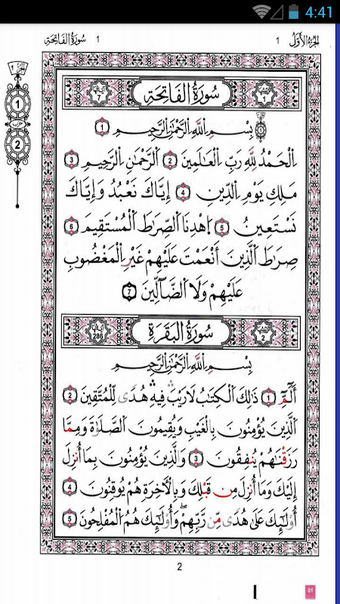 4:41
الجزء الأول 1
1 سورة الفاتحة
الجزء
1
حزب
2
سُورَةُ الفَاتِحَةِ
بِسْمِ اللَّهِ الرَّحْمَٰنِ الرَّحِيمِ ١
اِ۬لْحَمْدُ لِلَّهِ رَبِّ اِ۬لْعَٰلَمِينَ ٢ اَ۬لرَّحْمَٰنِ اِ۬لرَّحِيمِ ٣
مَٰلِكِ يَوْمِ اِ۬لدِّينِ ٤ إِيَّاكَ نَعْبُدُ وَإِيَّاكَ
نَسْتَعِينُ ٥ اَ۪هْدِنَا اَ۬لصِّرَٰطَ اَ۬لْمُسْتَقِيمَ ٦
صِرَٰطَ اَ۬لَّذِينَ أَنْعَمْتَ عَلَيْهِمْ غَيْرِ اِ۬لْمَغْضُوبِ
عَلَيْهِمْ وَلَا اَ۬لضَّآلِّينَ ٧
2
سُورَةُ البَقَرَةِ
2
بِسْمِ اللَّهِ الرَّحْمَٰنِ الرَّحِيمِ
أَلَٓمِّٓ ١ ذَٰلِكَ اَ۬لْكِتَٰبُ لَا رَيْبَ فِيهِ هُدًى لِّلْمُتَّقِينَ ٢
اَ۬لَّذِينَ يُؤْمِنُونَ بِالْغَيْبِ وَيُقِيمُونَ اَ۬لصَّلَوٰةَ وَمِمَّا
رَزَقْنَٰهُمْ يُنفِقُونَ ٣ وَالَّذِينَ يُؤْمِنُونَ بِمَا أُنزِلَ
إِلَيْكَ وَمَا أُنزِلَ مِن قَبْلِكَ وَبِالْأَخِرَةِ هُمْ يُوقِنُونَ ٤
أُو۟لَٰٓئِكَ عَلَىٰ هُدًى مِّن رَّبِّهِمْ وَأُو۟لَٰٓئِكَ هُمُ اَ۬لْمُفْلِحُونَ ٥
2